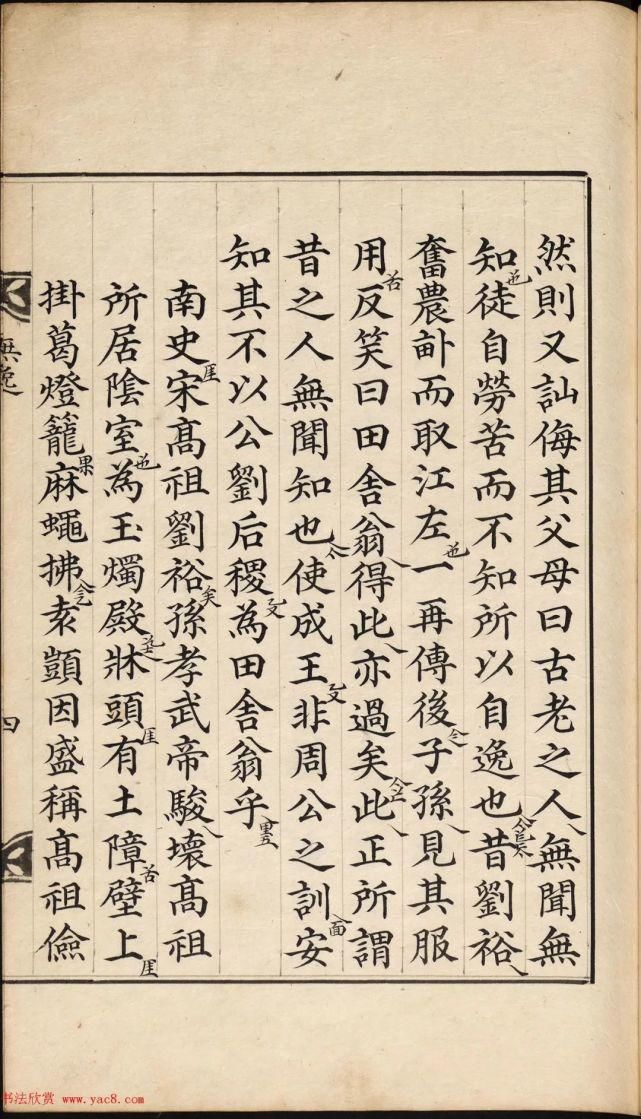 然則又訕侮其父母曰古老之人無聞無
知徒自勞苦而不知所以自逸也昔劉裕
奮農畝而取江左一再傳後子孫見其服
用反笑曰田舍翁得此亦過矣此正所謂
昔之人無聞知也使成王非周公之訓安
知其不以公劉后稷為田舍翁乎
南史宋髙祖劉裕孫孝武帝駿壞髙祖
所居陰室為玉燭殿牀頭有土障壁上
掛葛燈籠麻蠅拂袁顗因盛稱髙祖儉
無逸
四
书法欣赏 www.yac8.com